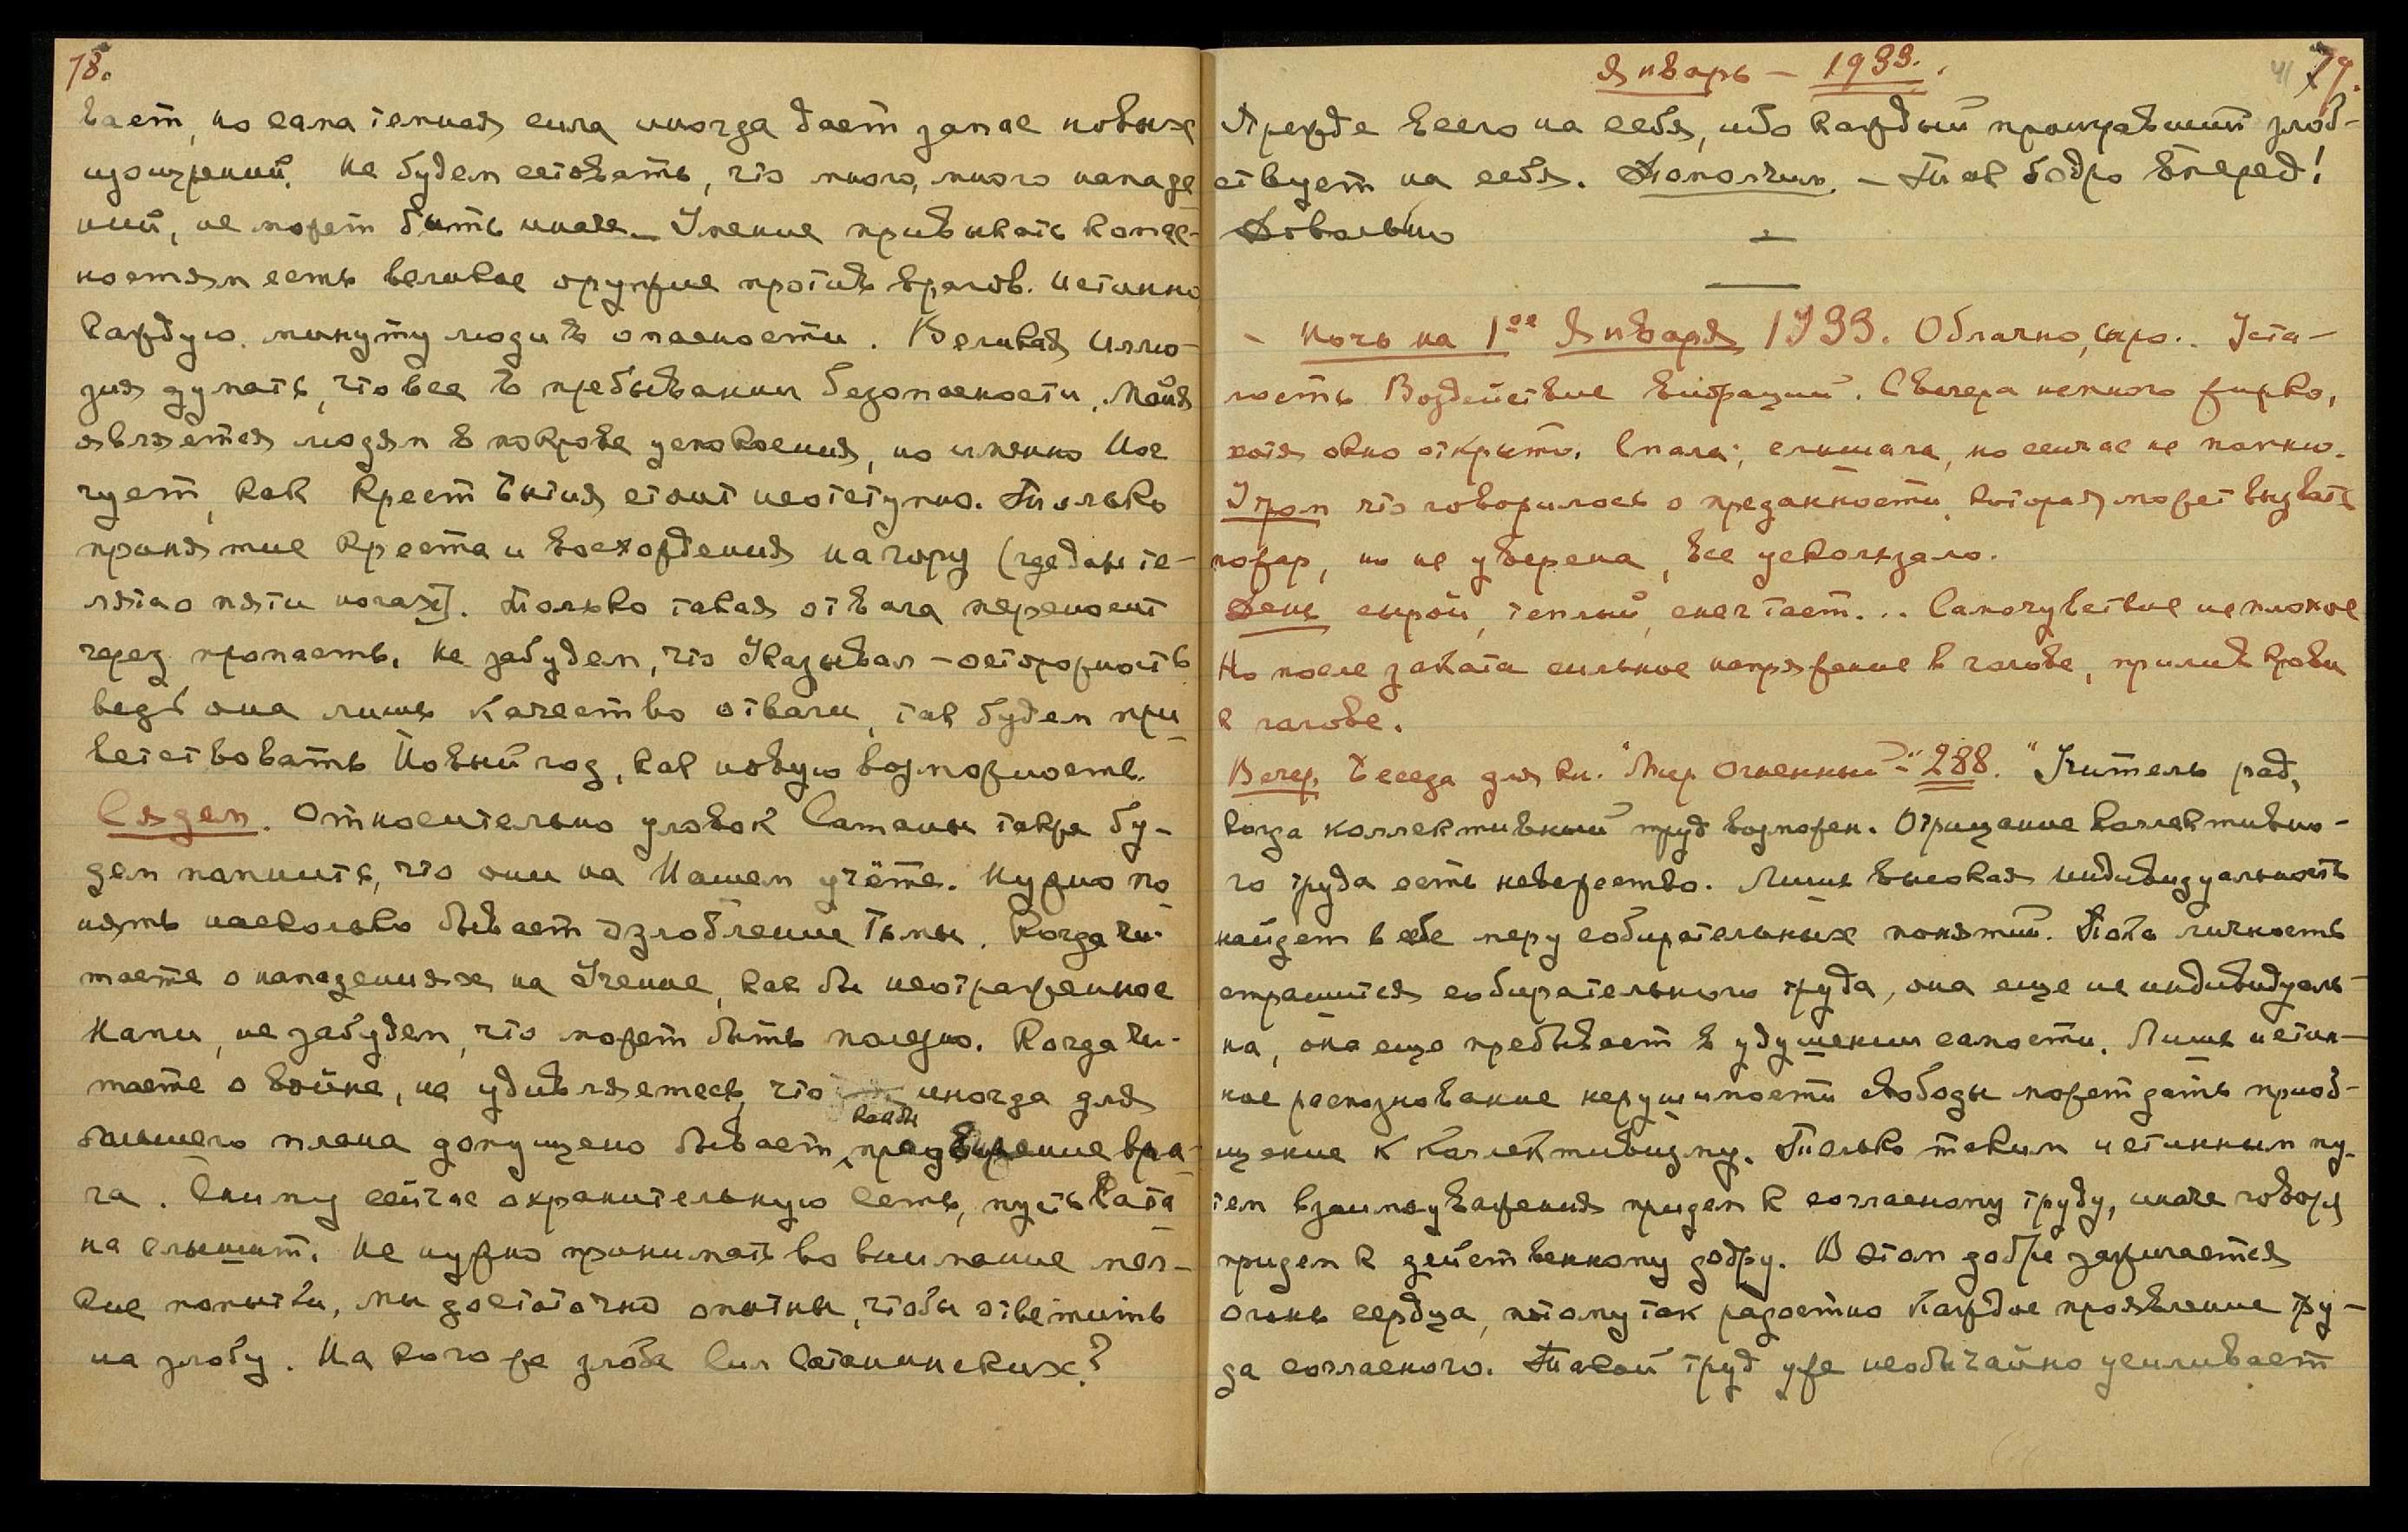 78.
вает, но сама темная сила иногда дает запас новых
изощрений. Не будем сетовать, что много, много нападе
ний, не может быть иначе. Умение привыкать к опас-
ностям есть великое оружие против врагов. Истинно,
каждую минуту люди в опасности. Великая иллю-
зия думать, что все в пребывании безопасности. Майя
является людям в покрове успокоения, но именно Иое
чует, как Крест бытия стоит неотступно. Только
принятие Креста и восхождения на гору (где даже те-
лята о пяти ногах]. Только такая отвага переносит
через пропасть. Не забудем, что Указывал – осторожность
ведь она лишь качество отваги, так будем при
ветствовать Новый год, как новую возможность.
Сядем. Относительно уловок Сатаны также бу-
дем помнить, что они на Нашем учёте. Нужно по
нять насколько бывает озлобление Тьмы. Когда чи-
таете о нападениях на Учение, как бы неотраженное
Нами, не забудем, что может быть полезно. Когда чи-
таете о войне, не удивляетесь, что иногда для
как бы
большего плана допущено бывает, преувеличение вра-
га. Сниму сейчас охранительную Сеть, пусть Сата
на слышит. Не нужно принимать во внимание мел-
кие попытки, мы достаточно опытны, чтобы ответить
на злобу. На кого же злоба Сил Сатанинских?
Январь – 1933.
41 79.
Прежде всего на себя, ибо каждый проигравший злоб-
ствует на себя. Пополчим. – Так бодро вперед!
Довольно
– Ночь на 1ое Января 1933. Облачно, сыро.. Уста-
лость. Воздействие вибраций. С вечера немного жарко,
хотя окно открыто. Спала; слышала, но сейчас не помню.
Утром что говорилось о преданности, которая может вызвать
пожар, но не уверена, все ускользало.
День сырой, теплый, снег тает... Самочувствие неплохое
Но после заката сильное напряжение в голове, прилив крови
к голове.
Вечер. Беседа для кн. "Мир Огненный" – 288. "Учитель рад,
когда коллективный труд возможен. Отрицание коллективно-
го труда есть невежество. Лишь высокая индивидуальность
найдет в себе меру собирательных понятий. Пока личность
страшится собирательного труда, она еще не индивидуаль-
на, она еще пребывает в удушении самости. Лишь истин-
ное распознование нерушимости свободы может дать приоб-
щение к коллективизму. Только таким истинным пу-
тем взаимоуважения придем к согласному труду, иначе говоря
придем к действенному добру. В этом добре зажигается
огонь сердца, потому так радостно каждое проявление тру-
да согласного. Такой труд уже необычайно усиливает